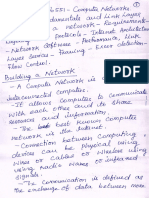 6551 - Computer Networks
Fundamentals and Link Layer
Building a network - Requirements
Layering protocols - Internet Architecture
- Network Software - Performance Link
Layer Services - Framing - Error detection
Flow Control.
Building a Network
- A Computer Network is a
interconnected computers.
- It allows computers to communicate
with each other and to share
resources and information.
- The best known computer
network is the Internet.
- Connection between Computing
devices can be physical using
wires or cables or wireless using
using radio waves or infrared
signals.
- The Communication is defined as
the exchange of data between more